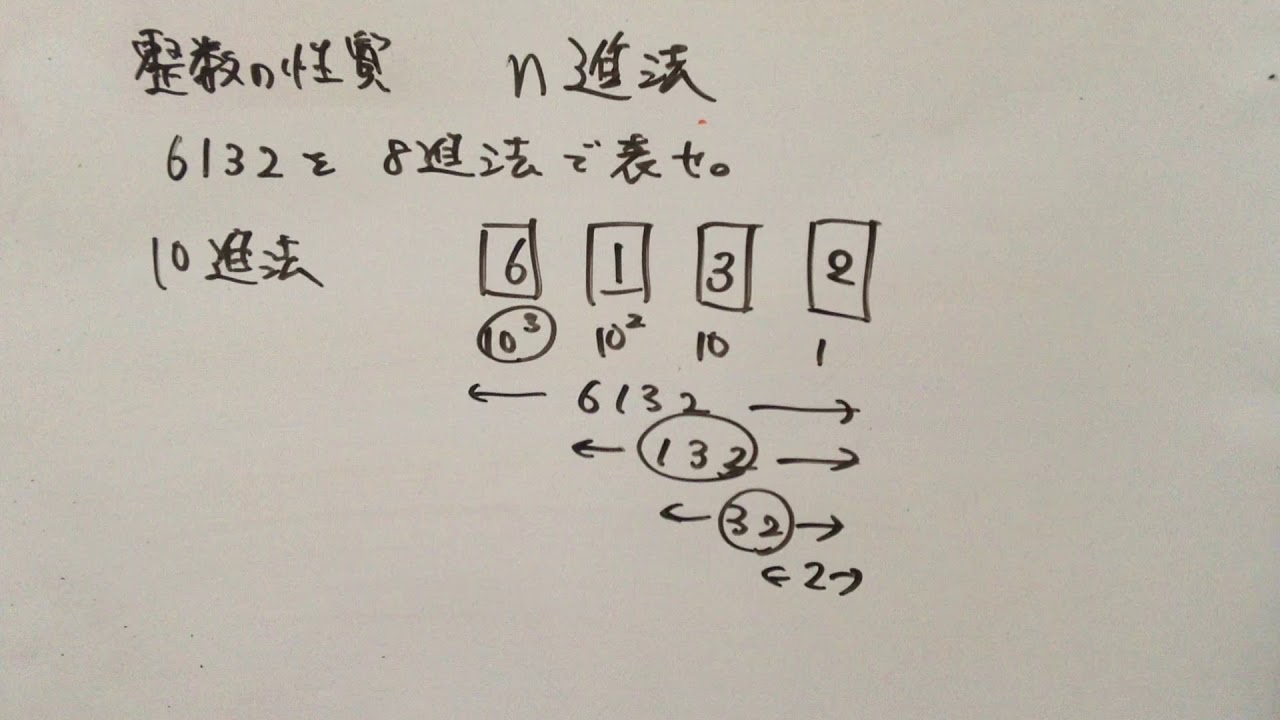 整数の性質 n進法
6132を 8進法で表せ。
10進法 6 1 3 2
10³ 10² 10 1
← 6132 →
← 132 →
← 32 →
← 2 →